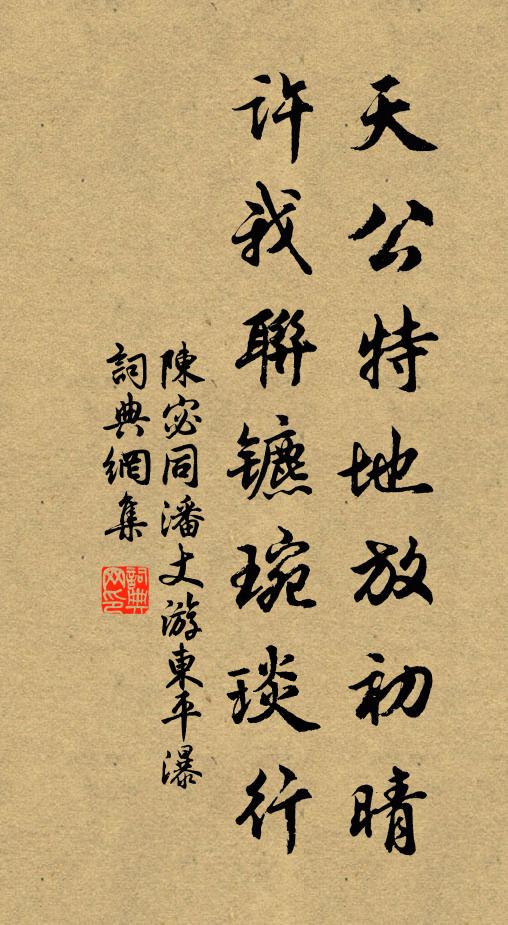 天公特地放初晴
許我聯鑣琬琰行
陳宓同潘丈游東平瀑
詞典網集
詞典網印